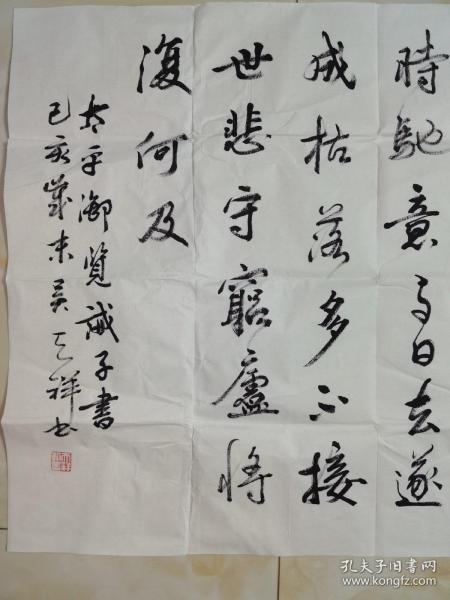 時馳意与日去遂
成枯落多不接
世悲守窮廬將
復何及
太平御覧誡子書
己亥歲末吴天祥书
孔夫子旧书网
www.kongfz.com